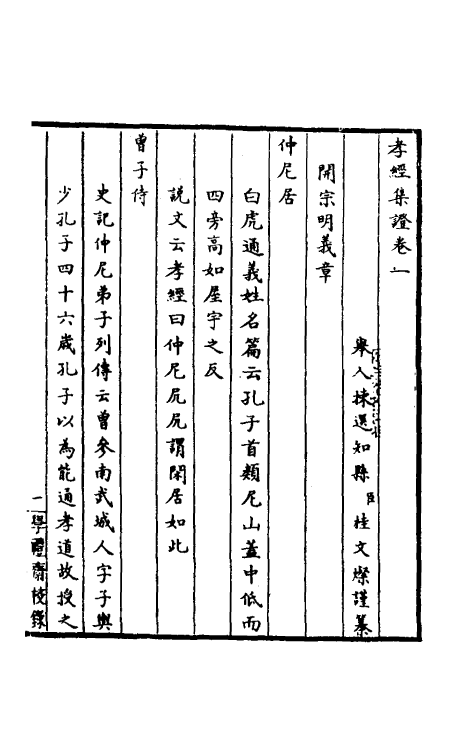 孝經集證卷一
舉人揀選知縣臣桂文燦謹纂
開宗明義章
仲尼居
白虎通義姓名篇云孔子首類尼山蓋中低而
四旁高如屋宇之反
說文云孝經曰仲尼凥凥謂閑居如此
曾子侍
史記仲尼弟子列傳云曾參南武城人字子輿
少孔子四十六歲孔子以為能通孝道故授之
一 學禮齋校錄